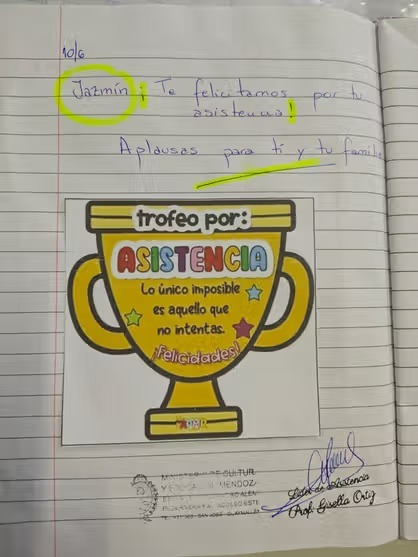 10/6
Jazmín ¡Te felicitamos por tu
asistencia!
Aplausos para tí y tu famili
trofeo por:
ASISTENCIA
Lo único imposible
es aquello que
no intentas.
¡Felicidades!
MINISTERIO DE CULTUR
MENDOZ
Líder de Asistencia
Prof. Gisella Ortiz